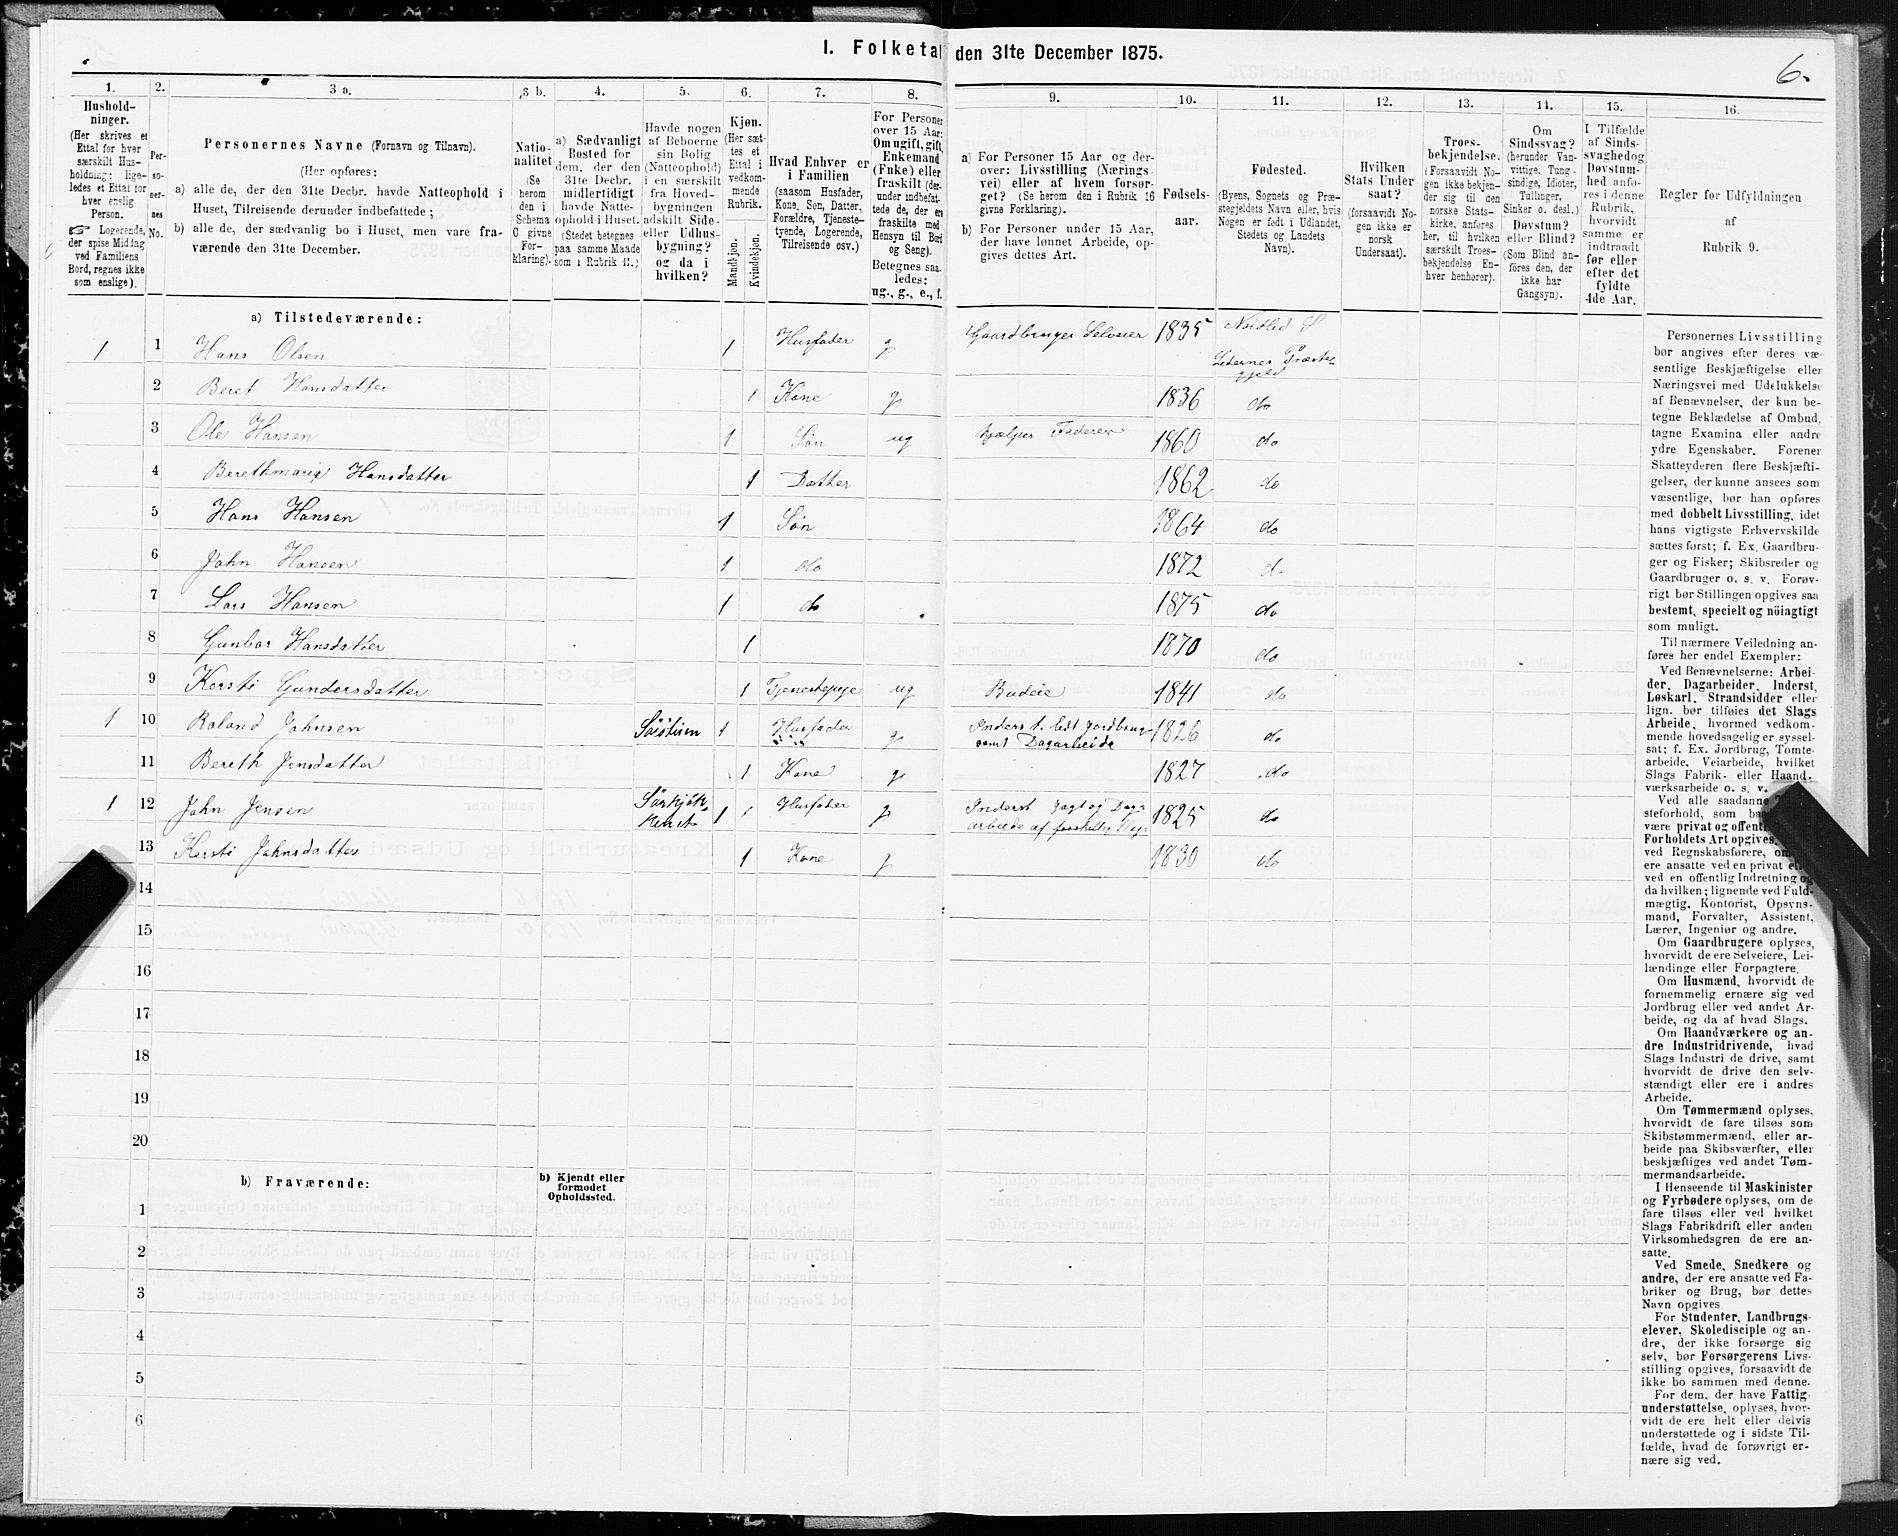 1. Folketal den 31te December 1875.
6.
1. 2. 3 a. 3 b. 4. 5. 6. 7. 8. 9. 10. 11. 12. 13. 14. 15. 16.
Hushold-
ninger.
(Her skrives et
Ettal for hver
særskilt Hus-
holdning; lige-
ledes et Ettal for
hver enslig
Person.
☞ Logerende,
der spise Middag
ved Familiens
Bord, regnes ikke
som enslige).
Per-
so-
ner-
nes
No.
Personernes Navne (Fornavn og Tilnavn).
(Her opføres:
a) alle de, der den 31te Decbr. havde Natteophold i
Huset, Tilreisende derunder indbefattede;
b) alle de, der sædvanlig bo i Huset, men vare fra-
værende den 31te December.
Natio-
nalitet
(Se
herom
den i
Schema
C givne
For-
klaring).
a) Sædvanligt
Bosted for
dem, der den
31te Decbr.
midlertidigt
havde Natte-
ophold i Huset.
(Stedet betegnes
paa samme Maade
som i Rubrik 11.)
Havde nogen
af Beboerne
sin Bolig
(Natteophold)
i en særskilt
fra Hoved-
bygningen
adskilt Side-
eller Udhus-
bygning?
og da i
hvilken?
Kjøn.
(Her sæt-
tes et
Ettal i
vedkom-
mende
Rubrik.
Mandkjøn.
Kvindekjøn.
Hvad Enhver er
i Familien
(saasom Husfader,
Kone, Søn, Datter,
Forældre, Tjeneste-
tyende, Logerende,
Tilreisende osv.)
For Personer
over 15 Aar:
Om ugift, gift,
Enkemand
(Enke) eller
fraskilt (der-
under indbefat-
tede de, der ere
fraskilte med
Hensyn til Bord
og Seng).
Betegnes saa-
ledes:
ug., g., e., f.
a) For Personer 15 Aar og der-
over: Livsstilling (Nærings-
vei) eller af hvem forsør-
get? (Se herom den i Rubrik 16
givne Forklaring).
b) For Personer under 15 Aar,
der have lønnet Arbeide, op-
gives dettes Art.
Fødsels-
aar.
Fødested.
(Byens, Sognets og Præ-
stegjeldets Navn eller, hvis
Nogen er født i Udlandet,
Stedets og Landets
Navn).
Hvilken
Stats Under
saat?
(forsaavidt No-
gen ikke er
norsk
Undersaat).
Troes-
bekjendelse.
(Forsaavidt No-
gen ikke bekjen-
der sig til den
norske Stats-
kirke, anføres
her, til hvilken
særskilt Troes-
bekjendelse En-
hver henhører).
Om
Sindssvag?
(herunder Van-
vittige, Tung-
sindige, Idioter,
Tullinger,
Sinker o. desl.)
Døvstum?
eller Blind?
(Som Blind an-
føres den, der
ikke har
Gangsyn).
I Tilfælde
af Sinds-
svaghed og
Døvstum-
hed anfø-
res i denne
Rubrik,
hvorvidt
samme er
indtraadt
før eller
efter det
fyldte
4de Aar.
Regler for Udfyldningen
af
Rubrik 9.
a) Tilstedeværende:
1 1 Hans Olsen 1 Husfader g Gaardbruger Selveier 1835 Nordlid S
Præste-
gjeld
2 Beret Hansdatter 1 Kone g 1836 do
3 Ole Hansen 1 Søn ug hjælper Faderen 1860 do
4 Berethmaria Hansdatter 1 Datter 1862 do
5 Hans Hansen 1 Søn 1864 do
6 John Hansen 1 do 1872 do
7 Lars Hansen 1 do 1875 do
8 Gunbor Hansdatter 1 1870 do
9 Kersti Gundersdatter 1 Tjenestepige ug Budeie 1841 do
1 10 Roland Johnsen 1 Husfader g Inderst Jordbrug 1826 do
samt Dagarbeide
11 Bereth Jensdatter 1 Kone g 1827 do
1 12 John Jensen 1 Husfader g Inderst Jagt og Dag- 1825 do
arbeide af forskellig Slags
13 Kersti Johnsdatter 1 Kone g 1830 do
14
15
16
17
18
19
20
b) Fraværende:
b) Kjendt eller
formodet
Opholdssted.
1
2
3
4
5
6
Personernes Livsstilling
bør angives efter deres væ-
sentlige Beskjæftigelse eller
Næringsvei med Udelukkelse
af Benævnelser, der kun be-
tegne Beklædelse af Ombud,
tagne Examina eller andre
ydre Egenskaber. Forener
Skatteyderen flere Beskjæfti-
gelser, der kunne ansees som
væsentlige, bør han opføres
med dobbelt Livsstilling, idet
hans vigtigste Erhvervskilde
sættes først; f. Ex. Gaardbru-
ger og Fisker; Skibsreder og
Gaardbruger o. s. v. Forøv-
rigt bør Stillingen opgives saa
bestemt, specielt og nöiagtigt
som muligt.
Til nærmere Veiledning an-
føres her endel Exempler:
Ved Benævnelserne: Arbei-
der, Dagarbeider, Inderst,
Løskarl, Strandsidder eller
lign. bør tilføies det Slags
Arbeide, hvormed vedkom-
mende hovedsagelig er syssel-
sat; f. Ex. Jordbrug, Tomte-
arbeide, Veiarbeide, hvilket
Slags Fabrik- eller Haand-
værksarbeide o. s. v.
Ved alle saadanne
steforhold, som
være privat og offentl
Forholdets Art opgives,
ved Regnskabsførere,
ere ansatte ved en privat
ved en offentlig Indretning og
da hvilken; lignende ved Fuld-
mægtig, Kontorist, Opsyns-
mand, Forvalter, Assistent,
Lærer, Ingeniør og andre.
Om Gaardbrugere oplyses,
hvorvidt de ere Selveiere, Lei-
lændinge eller Forpagtere.
Om Husmænd, hvorvidt de
fornemmelig ernære sig ved
Jordbrug eller ved andet Ar-
beide, og da af hvad Slags.
Om Haandværkere og an-
dre Industridrivende, hvad
Slags Industri de drive, samt
hvorvidt de drive den selv-
stændigt eller ere i andres
Arbeide.
Om Tømmermænd oplyses,
hvorvidt de fare tilsøs som
Skibstømmermænd, eller ar-
beide paa Skibsværfter, eller
beskjæftiges ved andet Tøm-
mermandsarbeide.
I Henseende til Maskinister
og Fyrbødere oplyses, om de
fare tilsøs eller ved hvilket
Slags Fabrikdrift eller anden
Virksomhedsgren de ere an-
satte.
Ved Smede, Snedkere og
andre, der ere ansatte ved Fa-
briker og Brug, bør dettes
Navn opgives
For Studenter, Landbrugs-
elever, Skoledisciple og an-
dre, der ikke forsørge sig
selv, bør Forsørgerens Livs-
stilling opgives, forsaavidt de
ikke bo sammen med denne.
For dem, der have Fattig-
understøttelse, oplyses, hvor-
vidt de ere helt eller delvis
understøttede og i sidste Til-
fælde, hvad de forøvrigt er-
nære sig ved.